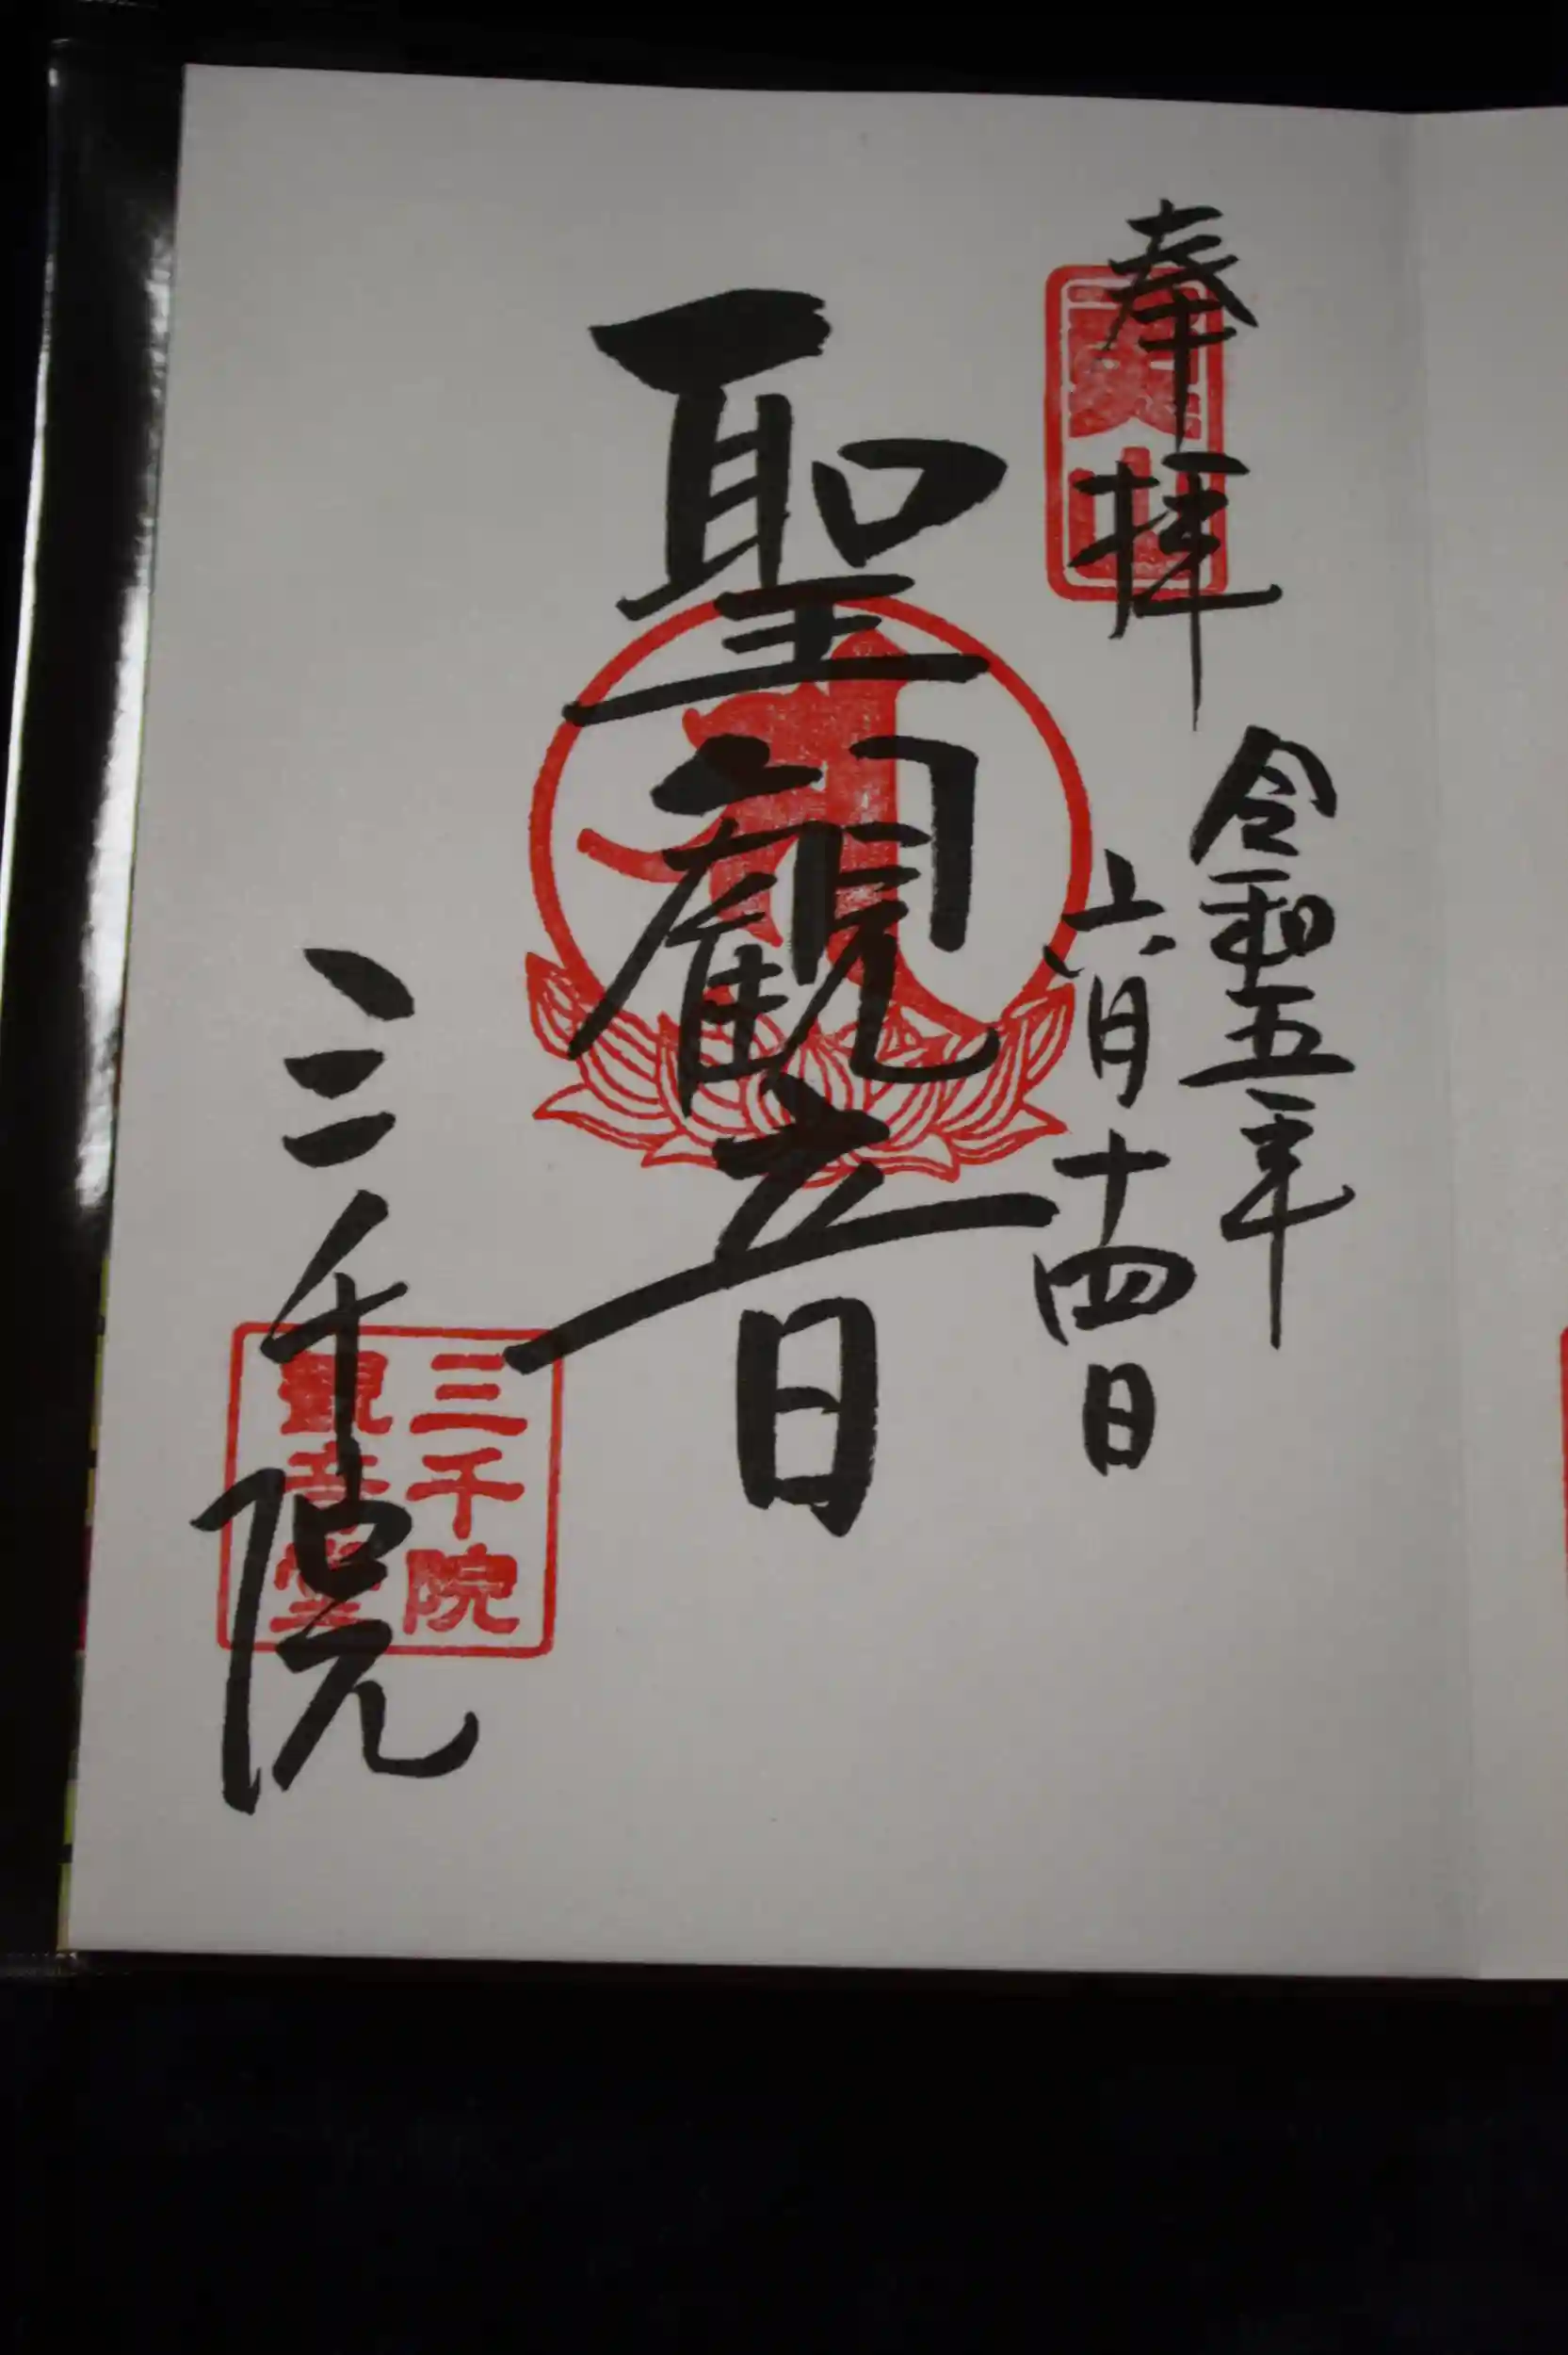 奉拝
魚山
令和五年
六月十四日
聖観音
三千院
三千院
觀音堂